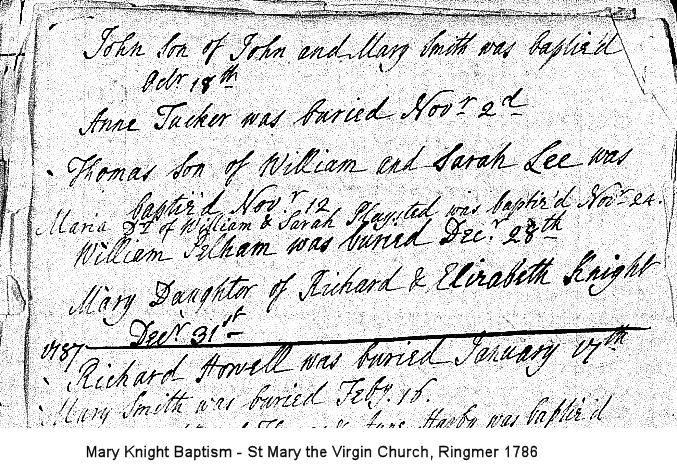 John Son of John and Mary Smith was baptiz'd
Octr 18th
Anne Tucker was buried Novr 2d
Thomas Son of William and Sarah Lee was
baptiz'd Novr 12
Maria Dr of William & Sarah Playsted was baptiz'd Novr 24.
William Pelham was buried Decr 28th
Mary Daughter of Richard & Elizabeth Knight
Decr 31st
1787
Richard Howell was buried January 17th
Mary Smith was buried Feby. 16.
was baptiz'd
Mary Knight Baptism - St Mary the Virgin Church, Ringmer 1786